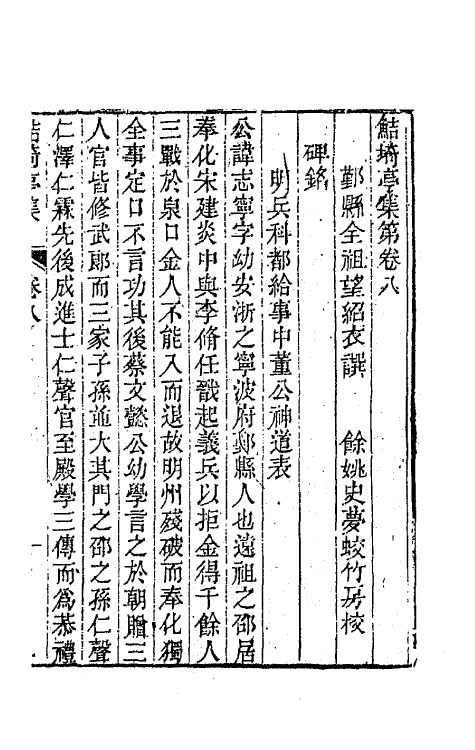 鮚埼亭集第卷八
鄞縣全祖望紹衣譔　餘姚史夢蛟竹房校
碑銘
明兵科都給事中董公神道表
公諱志寧字幼安浙之寧波府鄞縣人也遠祖之邵居
奉化宋建炎中與李脩任戩起義兵以拒金得千餘人
三戰於泉口金人不能入而退故明州殘破而奉化獨
全事定口不言功其後蔡文懿公幼學言之於朝贈三
人官皆修武郎而三家子孫並大其門之邵之孫仁聲
仁澤仁霖先後成進士仁聲官至殿學三傳而為恭禮
鮚埼亭集　卷八　一